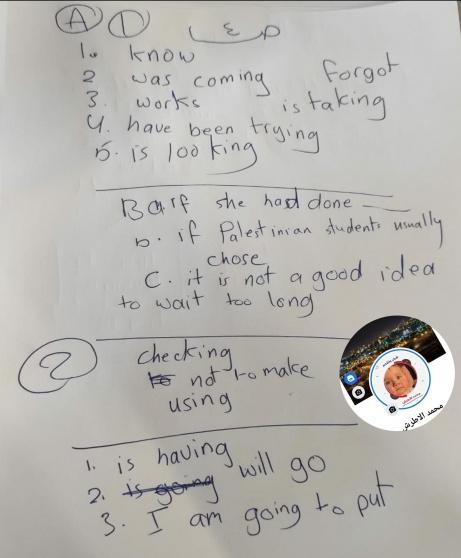 A 1
1. know
2 was coming forgot
3. works is taking
4. have been trying
5. is looking
B a. if she had done
b. if Palestinian students usually
chose
C. it is not a good idea
to wait too long
2
checking
not to make
using
1. is having
2. is going will go
3. I am going to put
محمد الاطرش